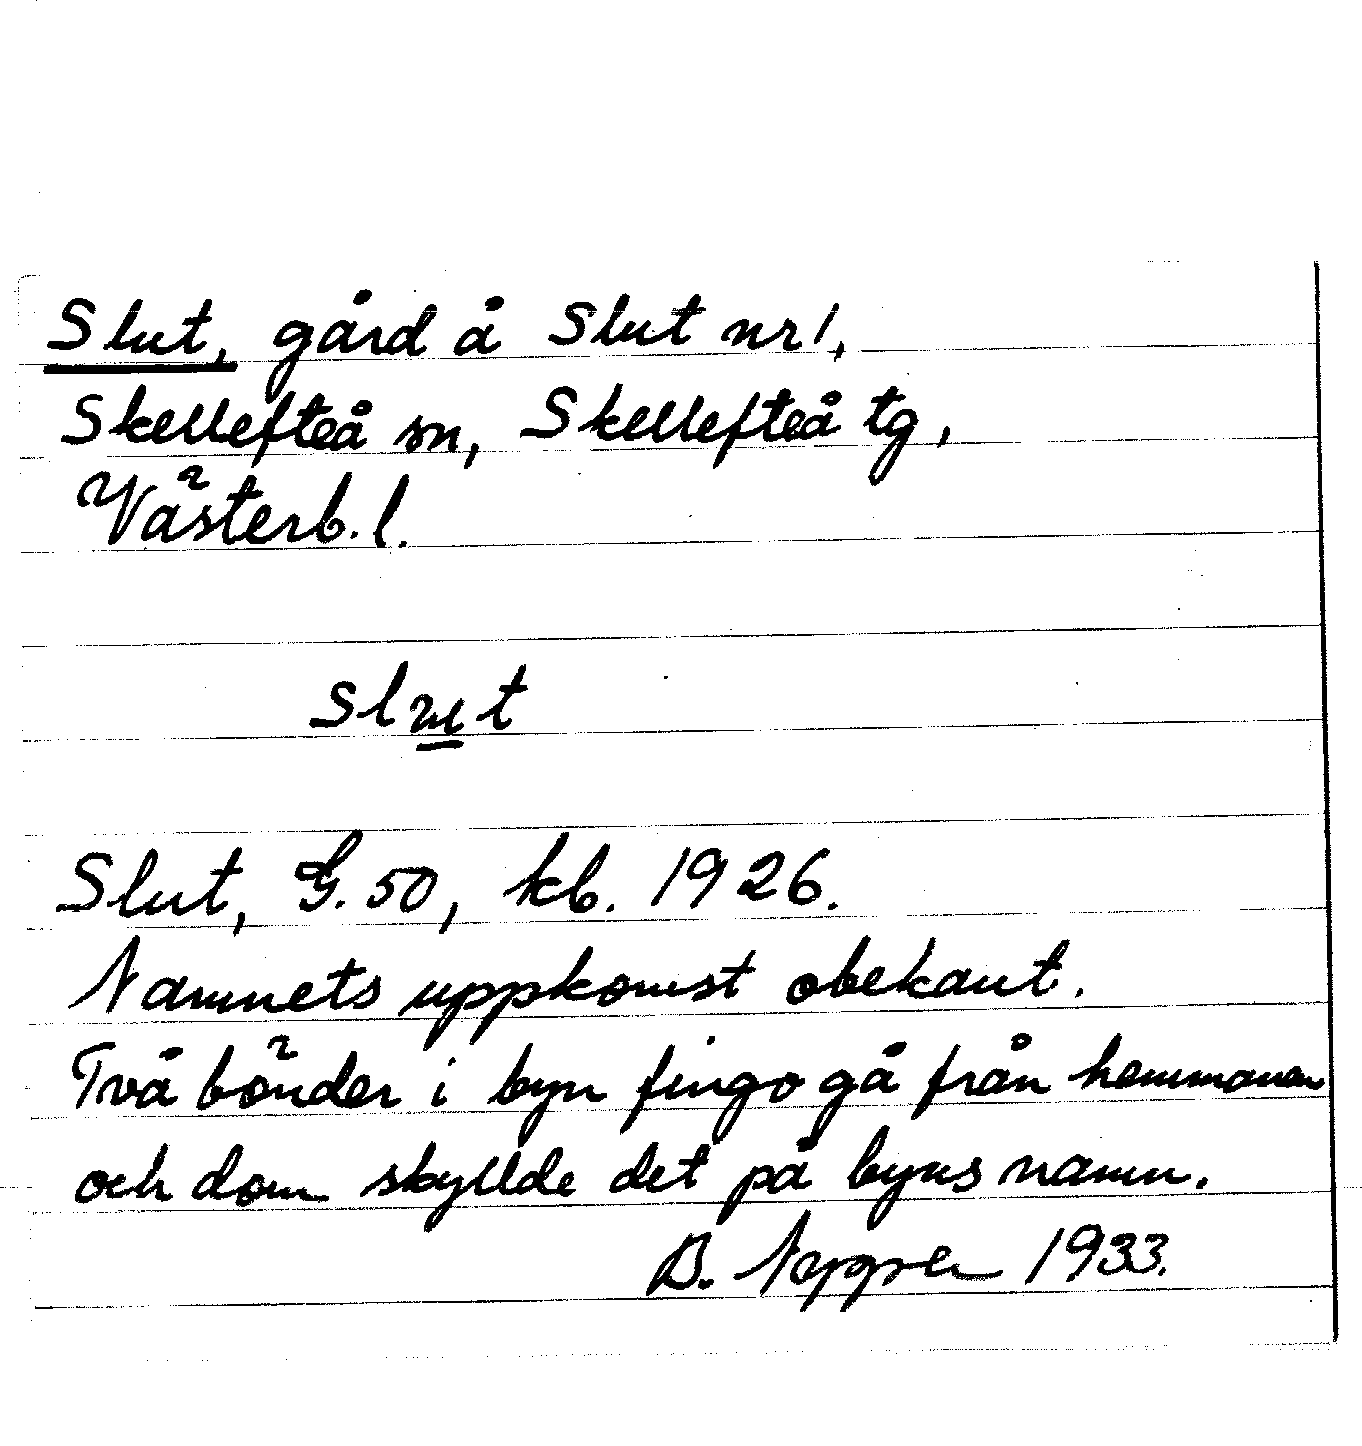 Slut, gård å Slut nr 1,
Skellefteå sn, Skellefteå tg,
Västerb. l.
Slut
Slut, G. 50, kb. 1926.
Namnets uppkomst obekant.
Två bönder i byn fingo gå från hemmanen
och dom skyllde det på byns namn.
B. 1933.